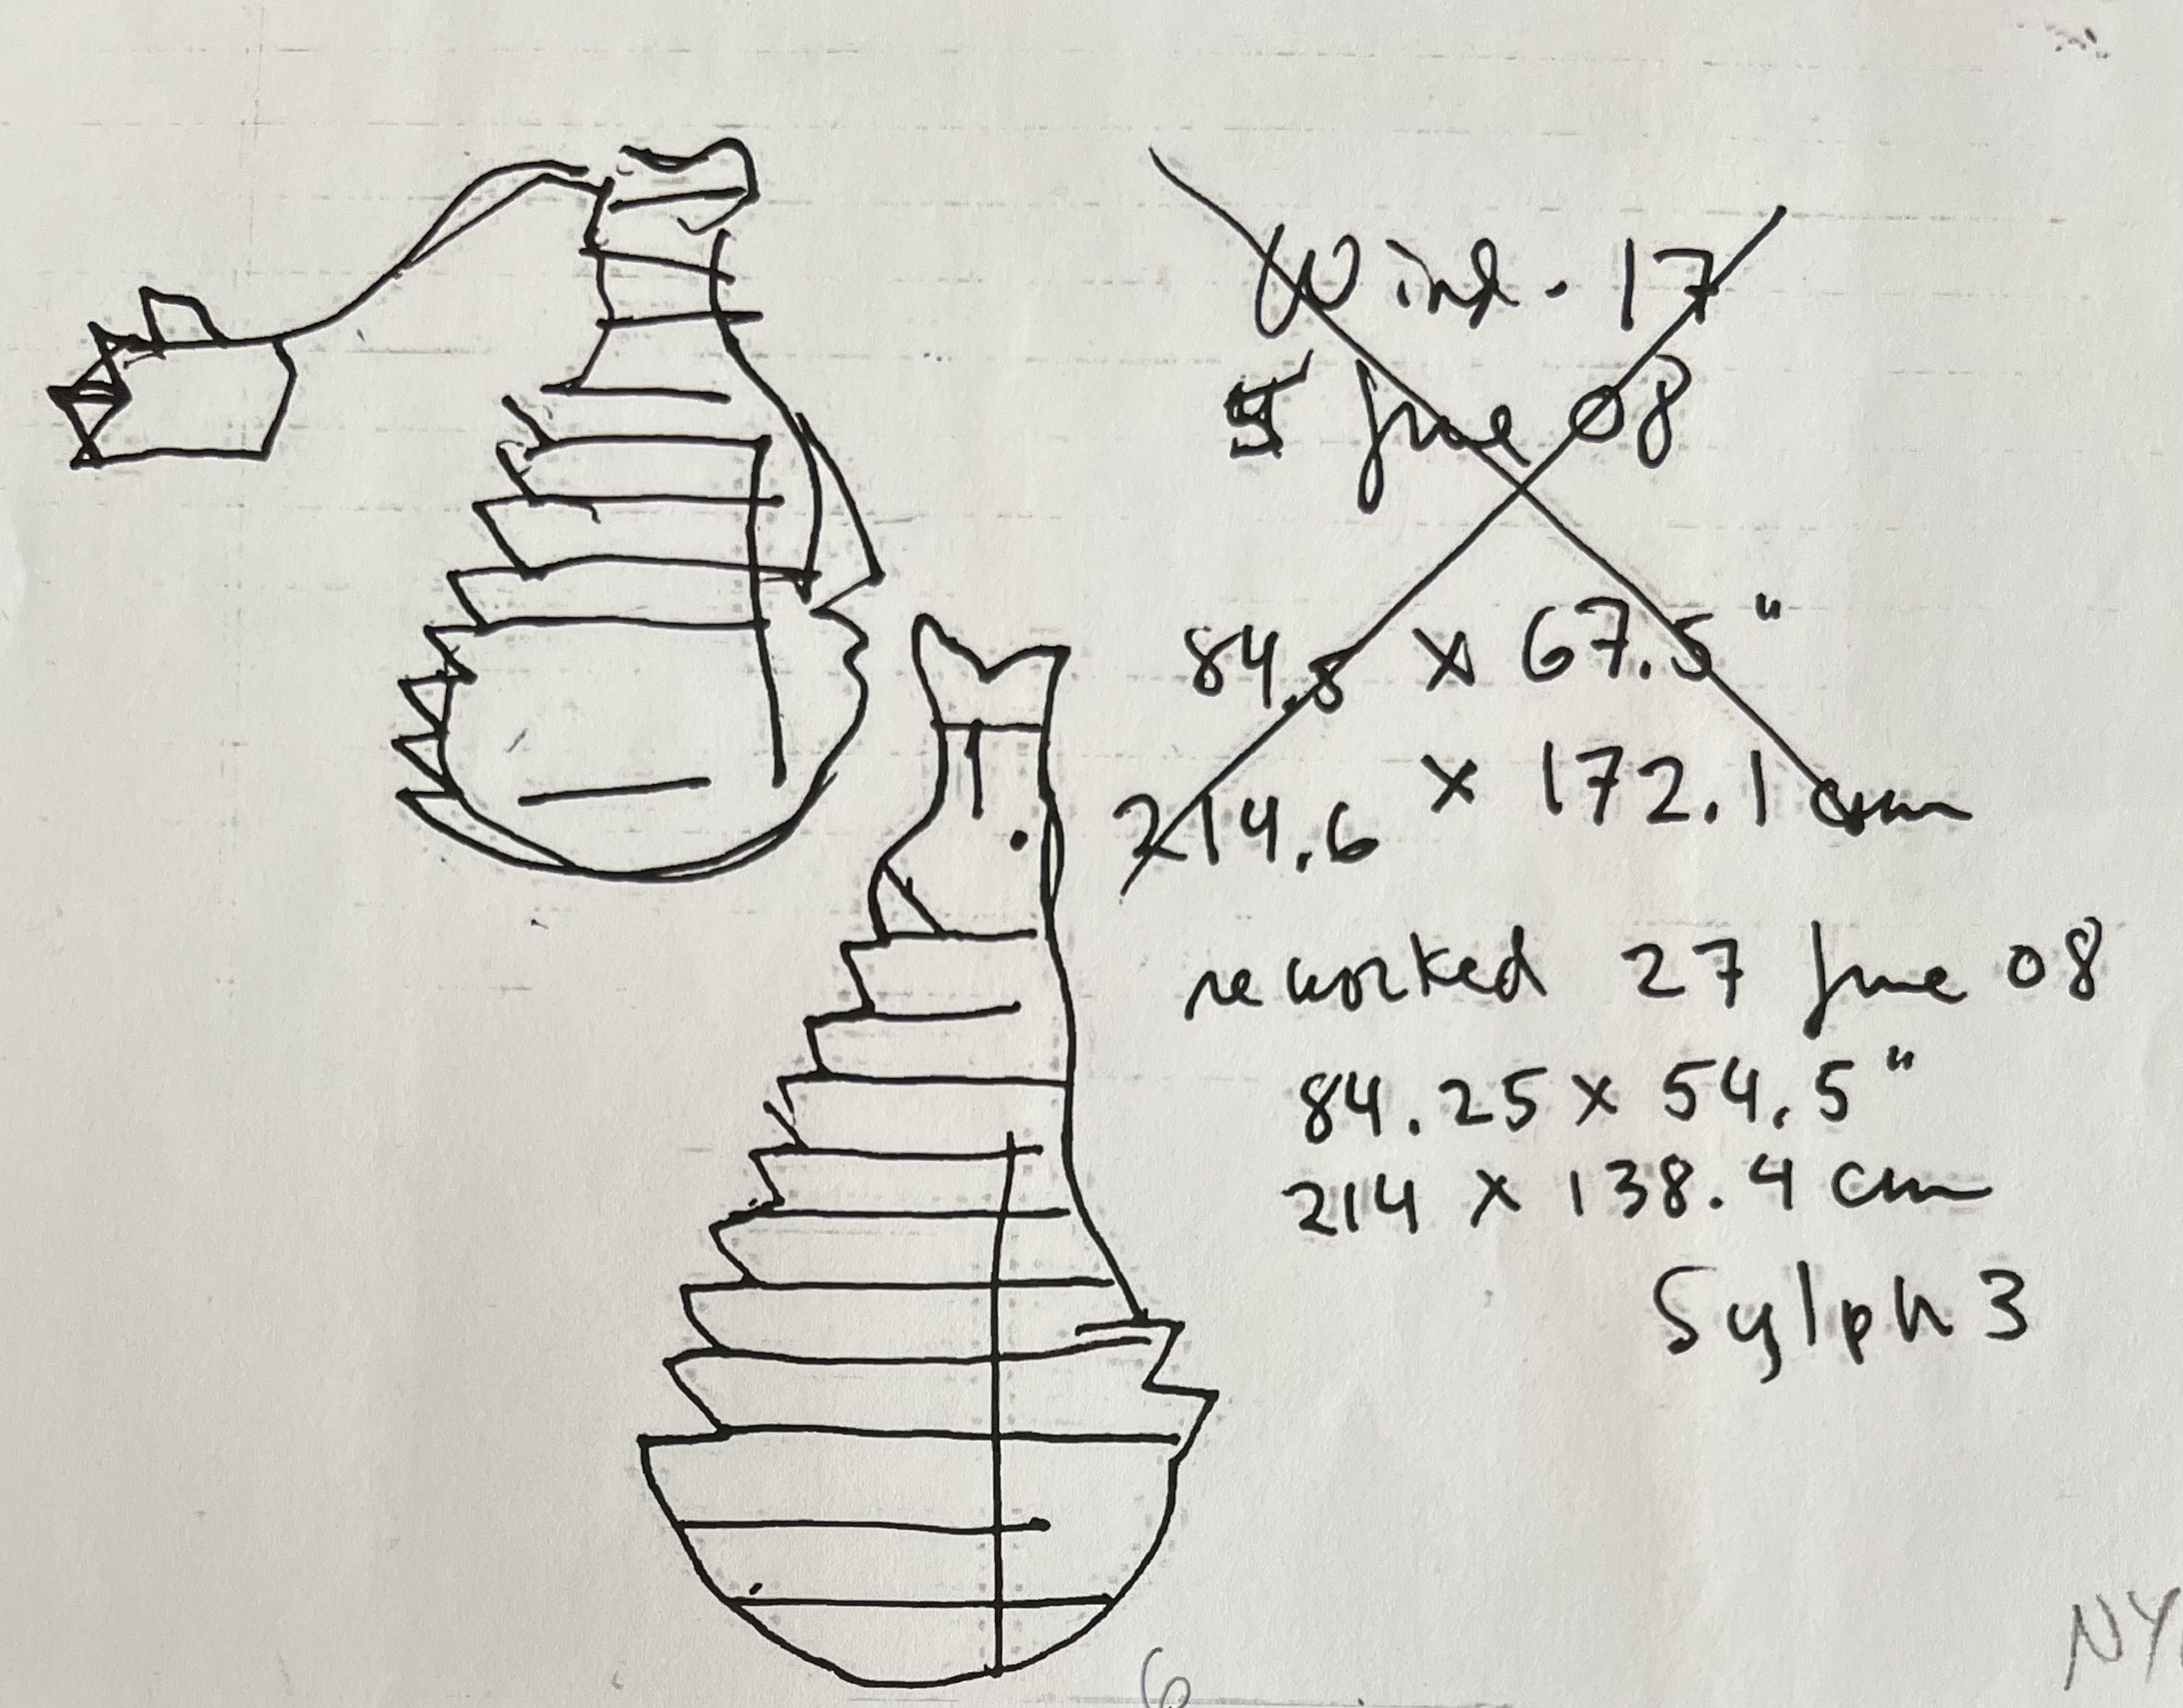 Wind. 17
5 June 08
84.5 x 67.5"
214.6 x 172.1 cm
reworked 27 June 08
84.25 x 54.5"
214 x 138.4 cm
Sylph 3
6
NY